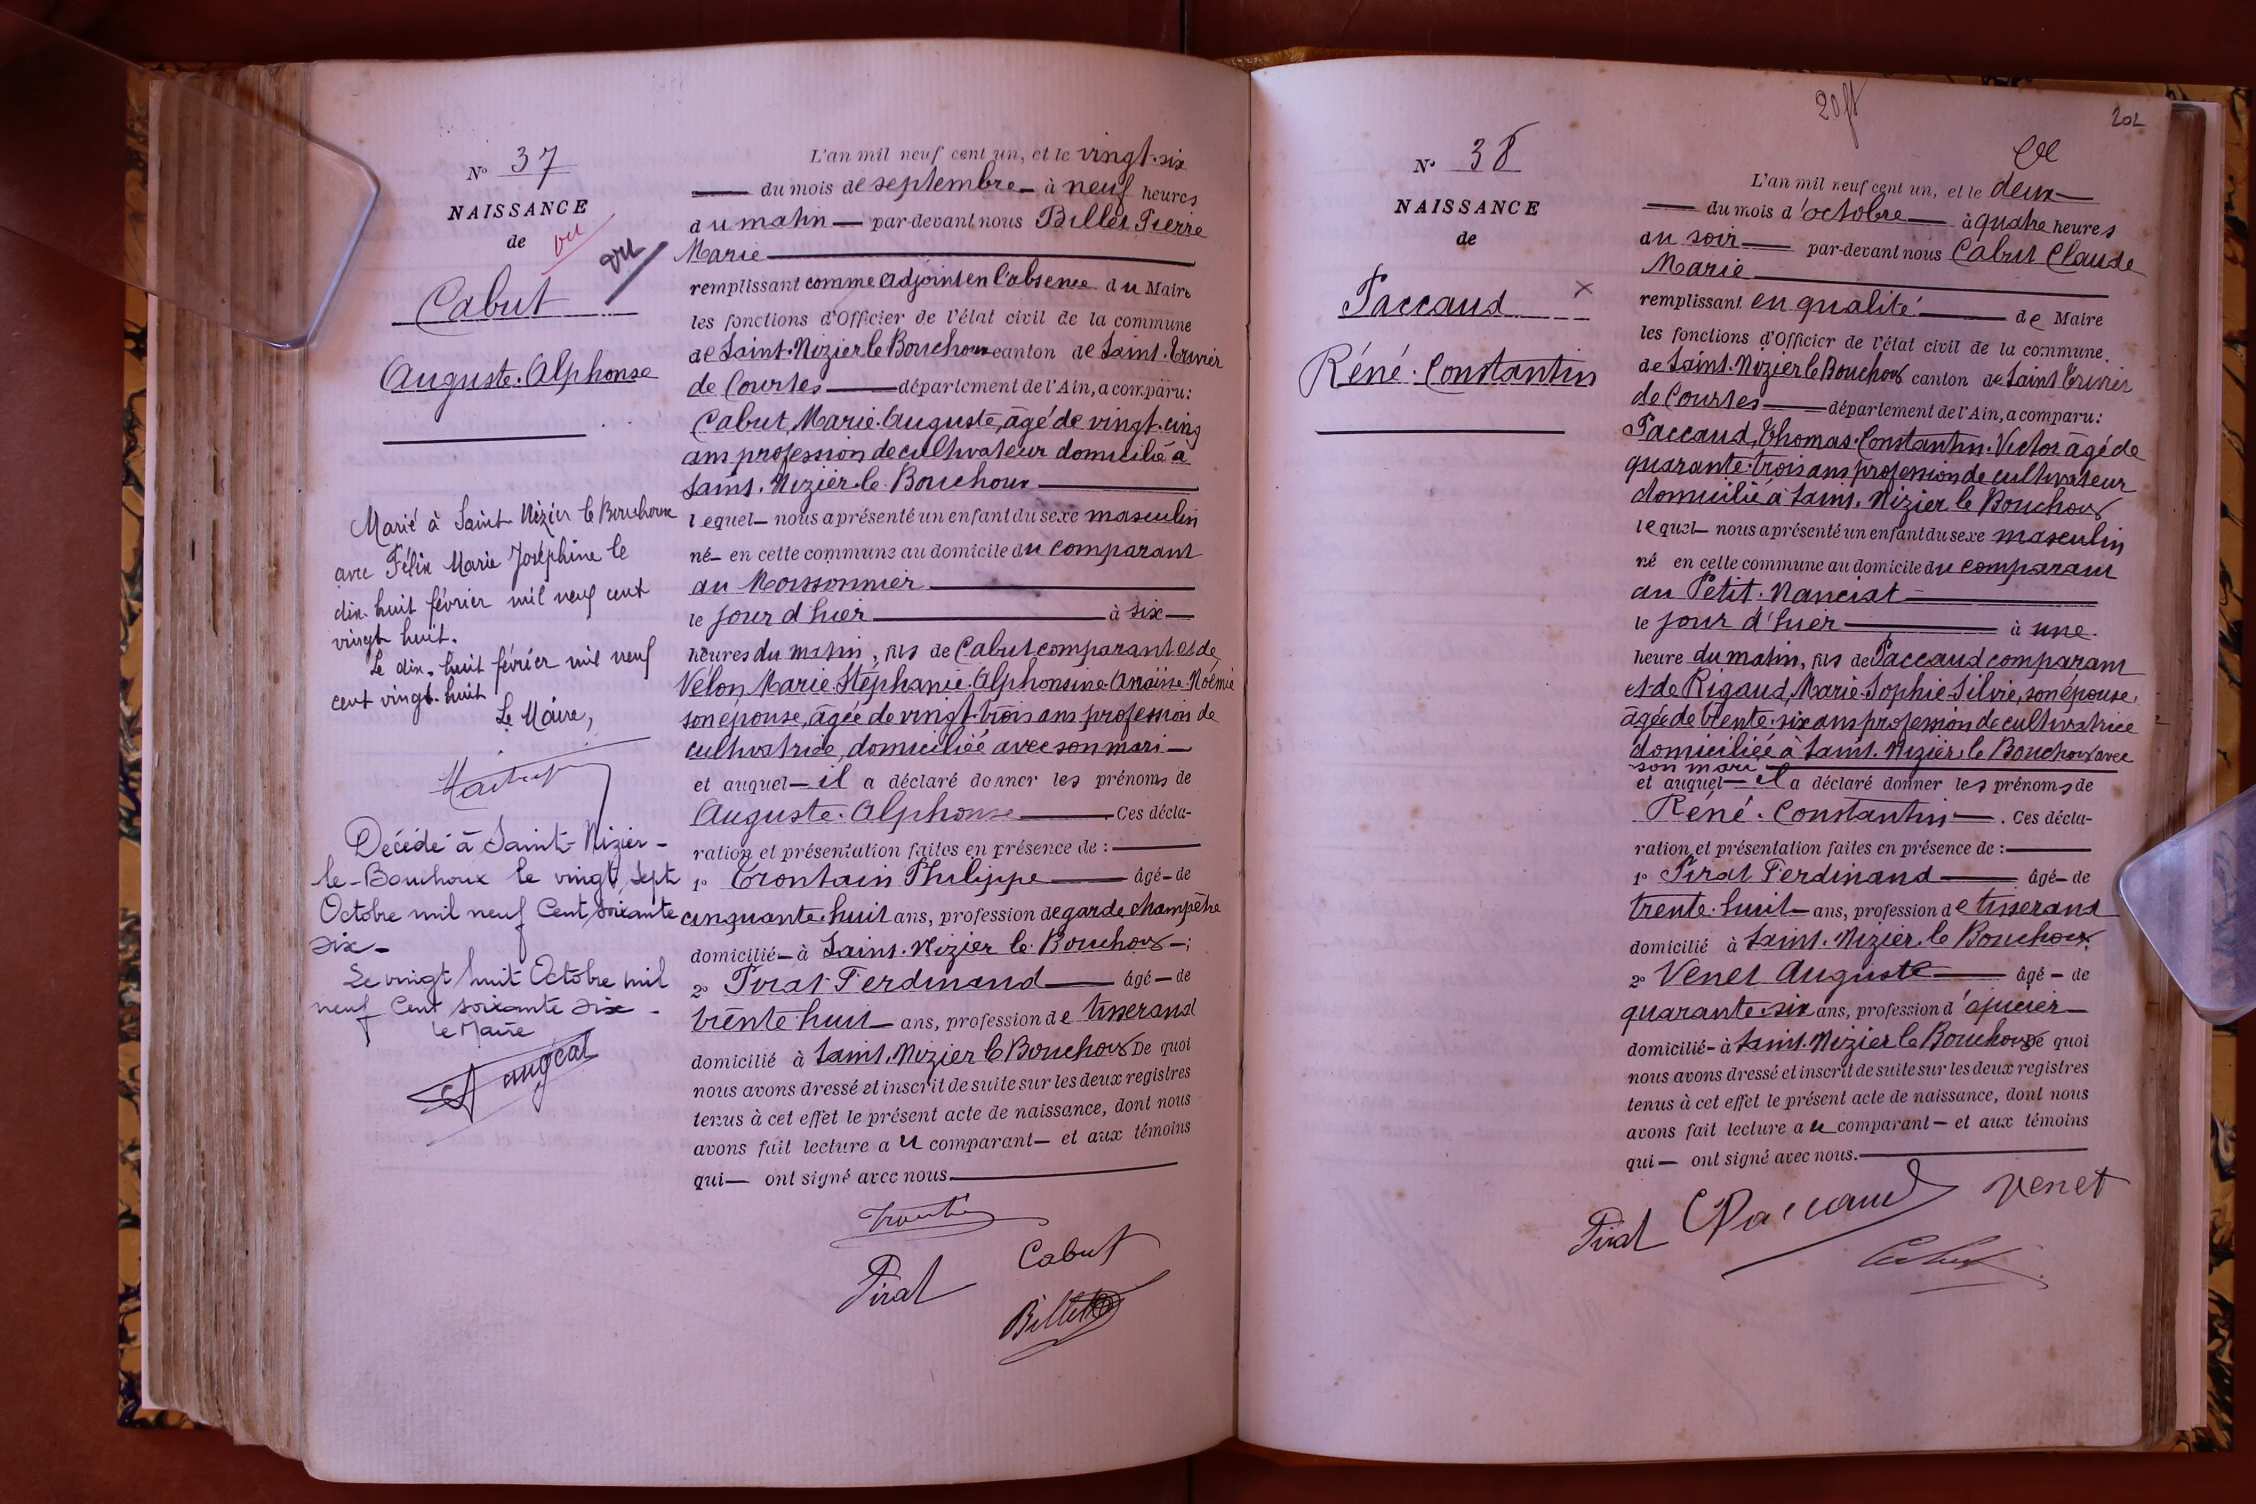 N° 37
NAISSANCE
de
vu
vu
Cabut
Auguste. Alphonse
Marié à Saint Nizier le Bouchoux
avec Félix Marie Joséphine le
dix huit février mil neuf cent
vingt huit.
Le dix-huit février mil neuf
cent vingt-huit
Le Maire,
Décédé à Saint-Nizier-
le-Bouchoux le vingt sept
Octobre mil neuf Cent soixante
six-
Le vingt huit Octobre mil
neuf Cent soixante six -
le Maire
L'an mil neuf cent un, et le vingt-six
du mois de septembre à neuf heures
du matin par-devant nous Billet Pierre
Marie
remplissant comme adjoint en l'absence du Maire
les fonctions d'Officier de l'état civil de la commune
de Saint-Nizier le Bouchoux canton de Saint-Trivier
de Courtes département de l'Ain, a comparu:
Cabut, Marie-Auguste, âgé de vingt-cinq
ans profession de cultivateur domicilié à
Saint-Nizier-le-Bouchoux
lequel nous a présenté un enfant du sexe masculin
né en cette commune au domicile du comparant
au Moissonnier
le jour d'hier à six
heures du matin, fils de Cabut comparant et de
Vélon Marie-Stéphanie-Alphonsine-Anaïse-Noémie
son épouse, âgée de vingt-trois ans profession de
cultivatrice, domiciliée avec son mari
et auquel il a déclaré donner les prénoms de
Auguste. Alphonse Ces décla-
ration et présentation faites en présence de :
1° Trontain Philippe âgé de
cinquante-huit ans, profession de garde champêtre
domicilié à Saint-Nizier le Bouchoux ;
2° Pirat Ferdinand âgé de
trente huit ans, profession de tisserand
domicilié à Saint-Nizier le Bouchoux De quoi
nous avons dressé et inscrit de suite sur les deux registres
tenus à cet effet le présent acte de naissance, dont nous
avons fait lecture au comparant et aux témoins
qui ont signé avec nous.
Pirat
Cabut
Billet
202
N° 38
NAISSANCE
de
Paccaud
Réné. Constantin
L'an mil neuf cent un, et le deux
du mois d'octobre à quatre heures
du soir par-devant nous Cabut Claude
Marie
remplissant en qualité de Maire
les fonctions d'Officier de l'état civil de la commune
de Saint-Nizier le Bouchoux canton de Saint Trivier
de Courtes département de l'Ain, a comparu:
Paccaud, Thomas-Constantin-Victor âgé de
quarante-trois ans profession de cultivateur
domicilié à Saint-Nizier le Bouchoux
lequel nous a présenté un enfant du sexe masculin
né en cette commune au domicile du comparant
au Petit-Nanciat
le jour d'hier à une
heure du matin, fils de Paccaud comparant
et de Rigaud, Marie-Sophie-Silvie, son épouse,
âgée de trente-six ans profession de cultivatrice
domiciliée à Saint-Nizier le Bouchoux avec
son mari
et auquel il a déclaré donner les prénoms de
René. Constantin . Ces décla-
ration et présentation faites en présence de :
1° Pirat Ferdinand âgé de
trente-huit ans, profession de tisserand
domicilié à Saint-Nizier le Bouchoux;
2° Venet Auguste âgé de
quarante-six ans, profession d'épicier
domicilié à Saint-Nizier le Bouchoux De quoi
nous avons dressé et inscrit de suite sur les deux registres
tenus à cet effet le présent acte de naissance, dont nous
avons fait lecture au comparant et aux témoins
qui ont signé avec nous.
Pirat Paccaud Venet
Cabut